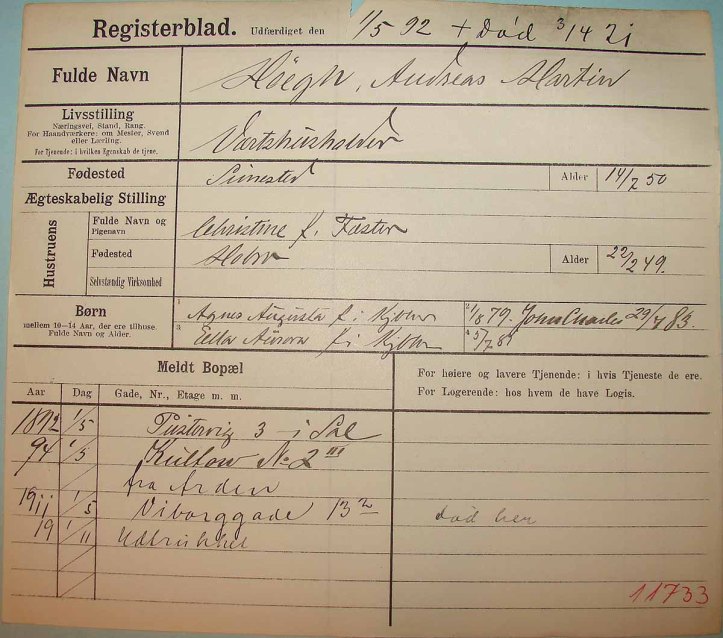 Registerblad. Udfærdiget den 1/5 92 + Död 3/4 21
Fulde Navn Höegh, Andreas Martin
Livsstilling
Næringsvei, Stand, Rang.
For Haandværkere: om Mester, Svend
eller Lærling.
For Tjenende: i hvilken Egenskab de tjene.
Værtshusholder
Fødested Simested Alder 14/2 50
Ægteskabelig Stilling
Hustruens
Fulde Navn og
Pigenavn
Christine f. Faster
Fødested Hobro Alder 22/2 49.
Selvstændig Virksomhed
Børn
mellem 10–14 Aar, der ere tilhuse.
Fulde Navn og Alder.
1 Agnes Augusta f. i Kjbhvn 2 1/8 79. John Charles 29/7 83.
3 Ella Aurora f. i Kjbhv 4 5/7 81
Meldt Bopæl
Aar Dag Gade, Nr., Etage m. m.
For høiere og lavere Tjenende: i hvis Tjeneste de ere.
For Logerende: hos hvem de have Logis.
1892 1/5 Pustervig 3 - i Sal
94 1/5 Kultorv No 2 III
fra Arden
1911 1/5 Viborggade 13 2 död her
19 1/11
11733